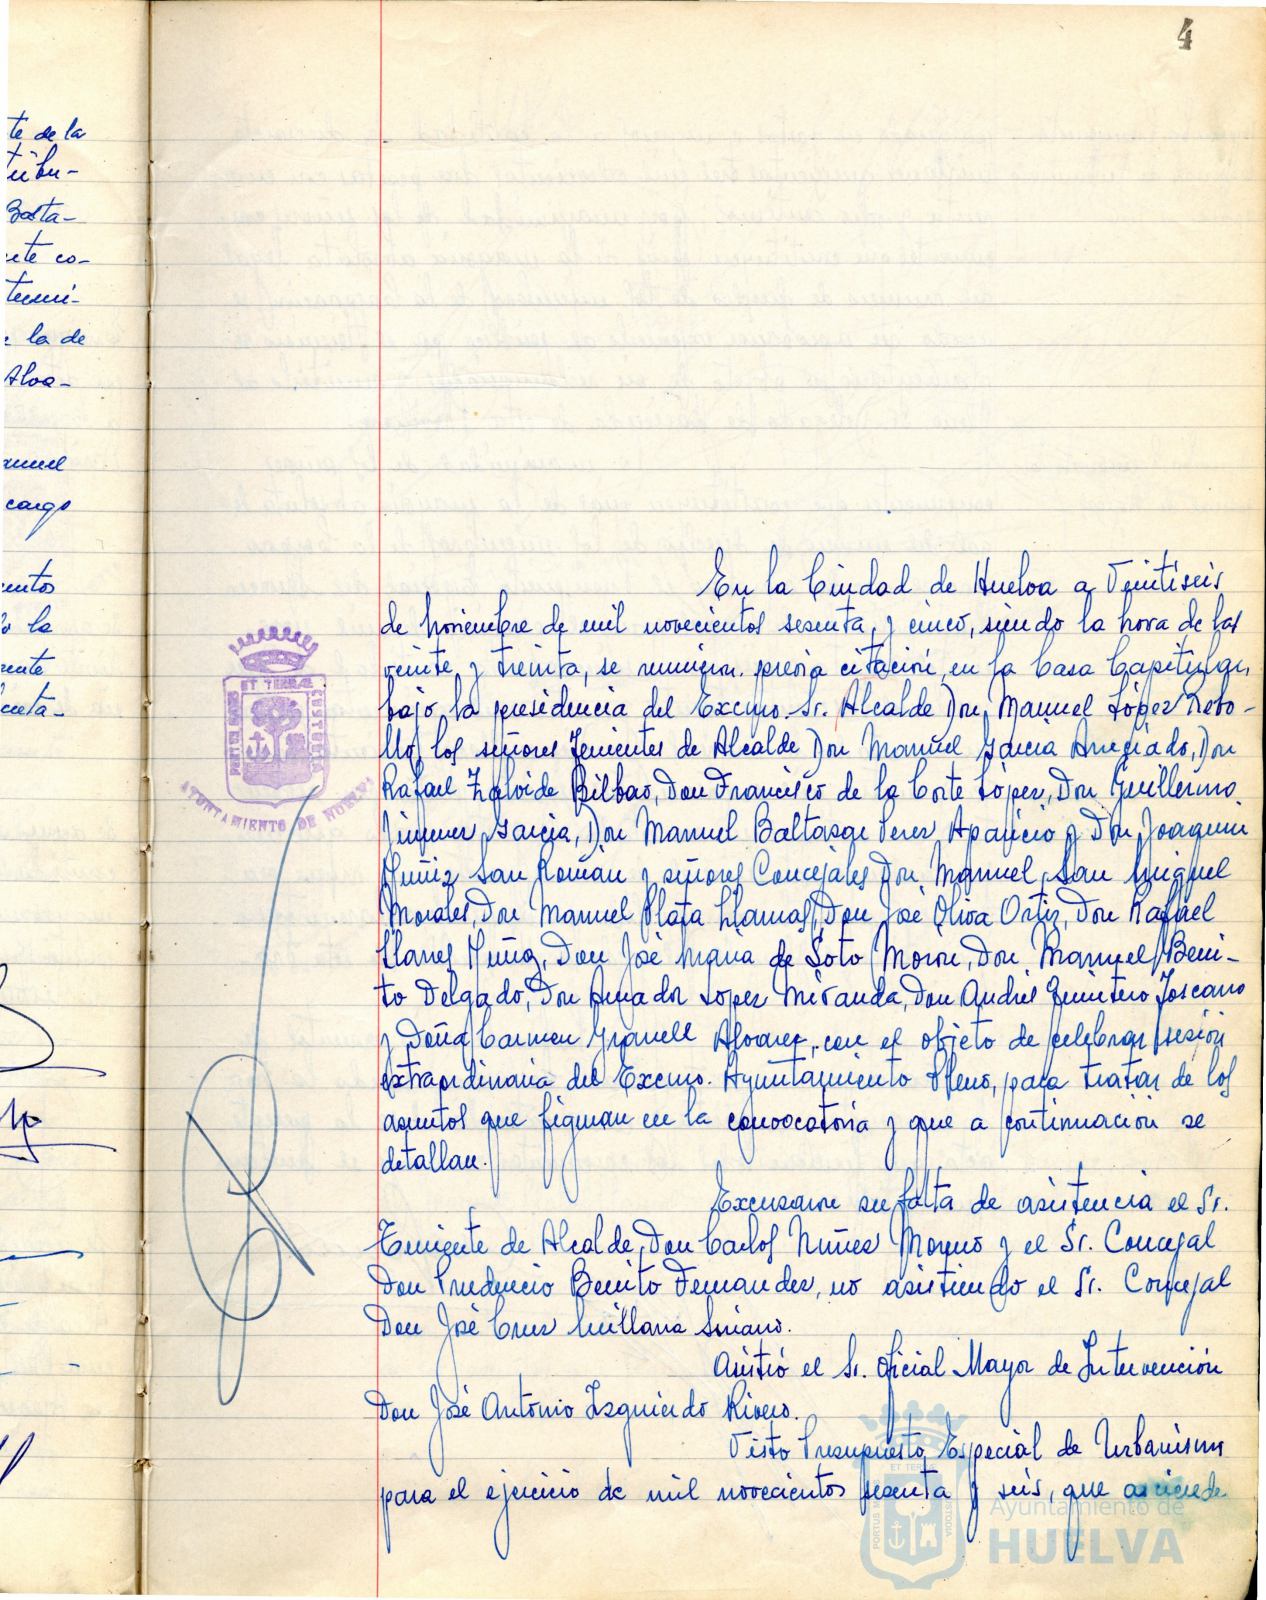 4
te de la
tribu-
Basta-
ente co-
termi-
e la de
Alva-
anuel
cargo
entos
o la
ente
creta-
En la Ciudad de Huelva a Veintiseis
de Noviembre de mil novecientos sesenta y cinco, siendo la hora de las
veinte y treinta, se reunieron, previa citación, en la Casa Capitular,
bajo la presidencia del Excmo. Sr. Alcalde Don Manuel López Rebo-
llo, los señores Tenientes de Alcalde Don Manuel Garcia Anegiado, Don
Rafael Zalvide Bilbao, Don Francisco de la Corte López, Don Guillermo
Jimenez Garcia, Don Manuel Baltasar Perez Aparicio y Don Joaquin
Muñiz San Román y señores Concejales Don Manuel San Miguel
Morales, Don Manuel Plata Llamas, Don José Oliva Ortiz, Don Rafael
Llanes Muñoz, Don José Maria de Soto Moron, Don Manuel Beni-
to Delgado, Don Amador Lopez Miranda, Don Andrés Quintero Toscano
y Doña Carmen Granell Alvarez, con el objeto de celebrar sesión
extraordinaria del Excmo. Ayuntamiento Pleno, para tratar de los
asuntos que figuran en la convocatoria y que a continuación se
detallan.
Excusaron su falta de asistencia el Sr.
Teniente de Alcalde, Don Carlos Núñez Moreno y el Sr. Concejal
Don Prudencio Benito Fernandez, no asistiendo el Sr. Concejal
Don José Cruz Soriano.
Asistió el Sr. Oficial Mayor de Intervención
Don José Antonio Izquierdo Rivero.
Visto Presupuesto Especial de Urbanismo
para el ejercicio de mil novecientos sesenta y seis, que asciende
ET TERRAE
CUSTODIA
PORTUS MARIS
AYUNTAMIENTO DE HUELVA
Ayuntamiento de
HUELVA